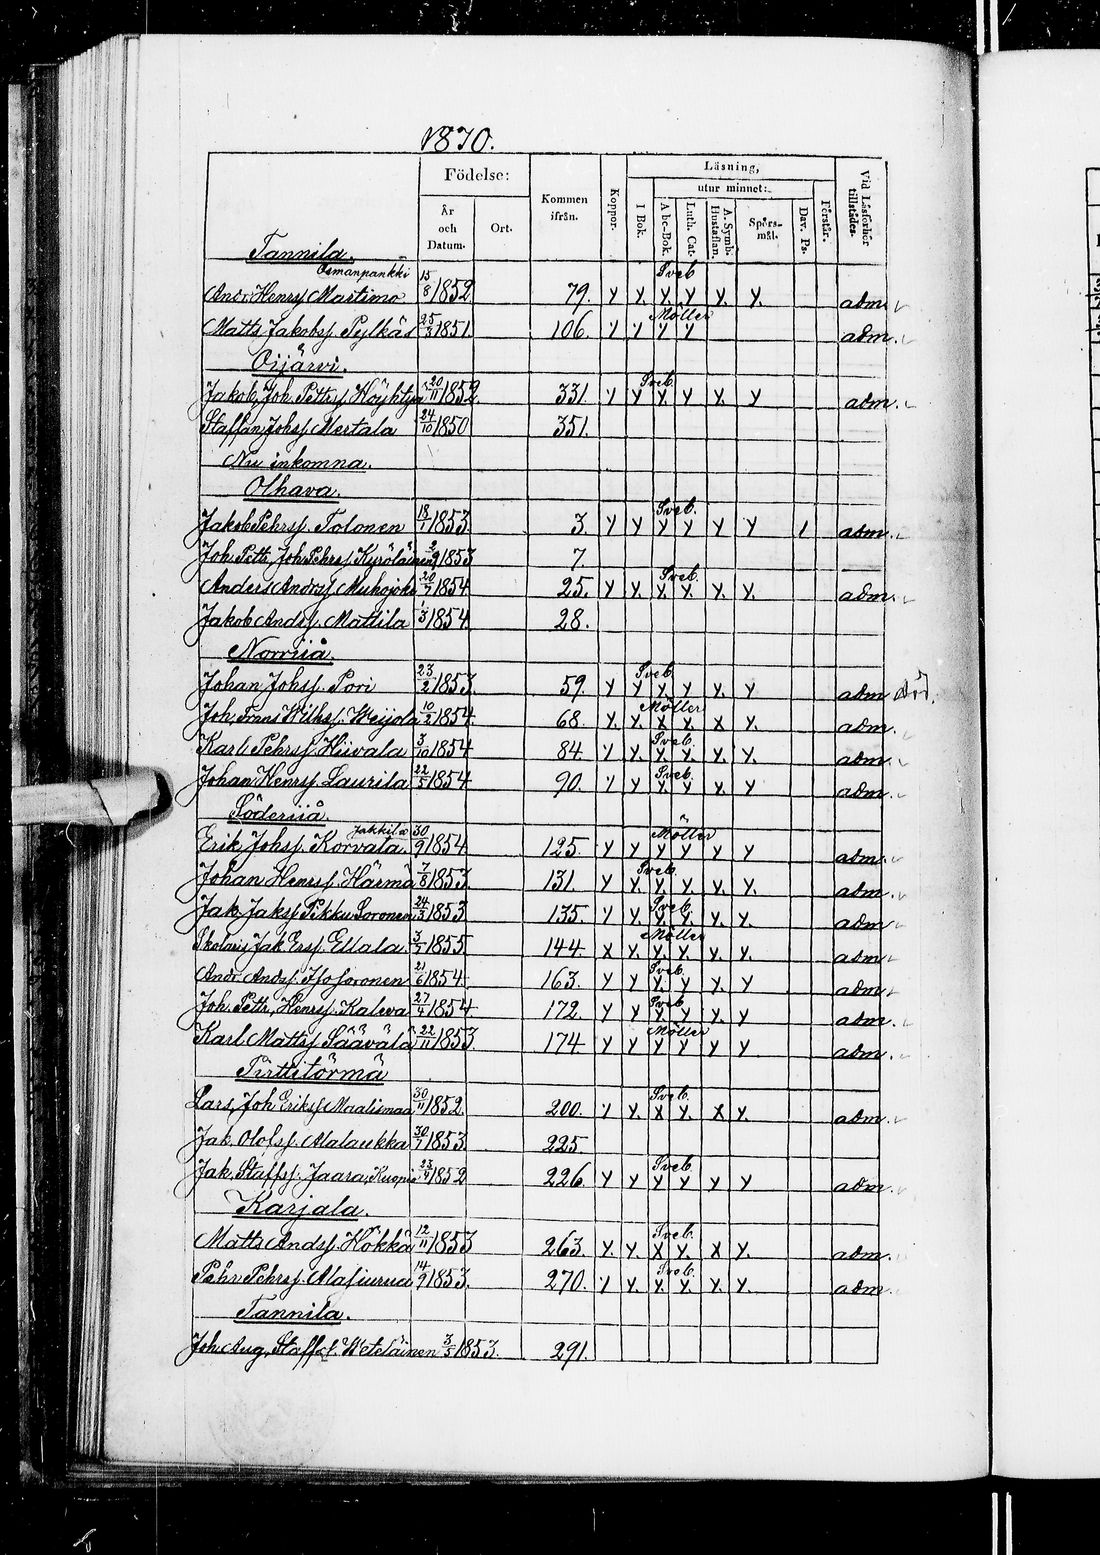 1870.
Födelse: Kommen ifrån. Koppor. Läsning, Vid Läsförhör tillstädes.
utur minnet:
År och Datum. Ort. I Bok. Abc-Bok. Luth. Cat. A. Symb. Hustaflan. Spörsmål. Dav. Ps. Förstår.
Tannila.
Osmanpankki Sveb
Andr. Henrs Martimo 15/8 1852 79. y y. y y y. y. adm.
Möller
Matts Jakobss Pylkäs 25/3 1851. 106. y y y y adm.
Oijärvi.
Sveb.
Jakob, Joh. Pettrs Höyhtyä 20/11 1852. 331. y y y. y y. y adm.
Staffan Johss Mertala 24/10 1850 351.
Nu inkomna.
Olhava.
Sveb.
Jakob Pehrss Tolonen 18/1 1853 3. y y y. y y y 1 adm.
Joh. Pettr, Joh Pehrss Kyröläinen 2/9 1853 7.
Sveb.
Anders Andrss Muhojoki 20/7 1854 25. y y. y. y. y. y. adm.
Jakob Andss. Mattila 1/3 1854 28.
Norriiå.
Sveb.
Johan Johss. Pori 23/2 1853. 59. y y y. y y. y adm död.
Möller
Joh. Frans Wilhss. Weijola 10/2 1854 68. y. y. x x x y. adm.
Sveb.
Karl Pehrss. Hiivala 3/10 1854 84. y y. y. y. y. y. adm.
Sveb.
Johan Henrss. Laurila 22/5 1854 90. y y y. y y. y adm.
Söderiiå
Jakkila Möller
Erik Johss. Korvala. 30/9 1854 125. y y y y y y adm.
Sveb.
Johan Henrss. Härmä 7/8 1853 131. y y. y. y. y. y. adm.
Sveb.
Jak. Jakss Pikku Soronen 24/3 1853 135. y y. y. y. y. y. adm
Möller
Skolaris Jak Erss. Ellala. 3/7 1855 144. x y. y. y. y. y. adm
Sveb.
Andr. Andss. Iso Soronen 2/6 1854. 163. y y y. y y. y adm.
Sveb.
Joh. Pettr, Henrss. Kaleva 27/4 1854 172. y y y. y. y. y adm.
Möller
Karl Mattss Säävälä 22/11 1853. 174. y y y y y y adm.
Pirttitörmä
Sveb.
Lars, Joh Erikss Maalismaa 30/11 1852. 200. y y. x y. x y. adm.
Jak. Olofss. Alalaukka 30/7 1853. 225
Sveb.
Jak. Staffss. Jaara, Kuopio 23/4 1852 226. y y. y y y y. adm.
Karjala.
Sveb.
Matts Andss Hökkä 12/11 1853 263. y. y. x y. x y. adm.
Sveb.
Pehr Pehrss. Alasiurua 14/9 1853. 270. y y. x. y. y. y. adm.
Tannila.
Joh. Aug, Staffss. Weteläinen 3/5 1853. 291.